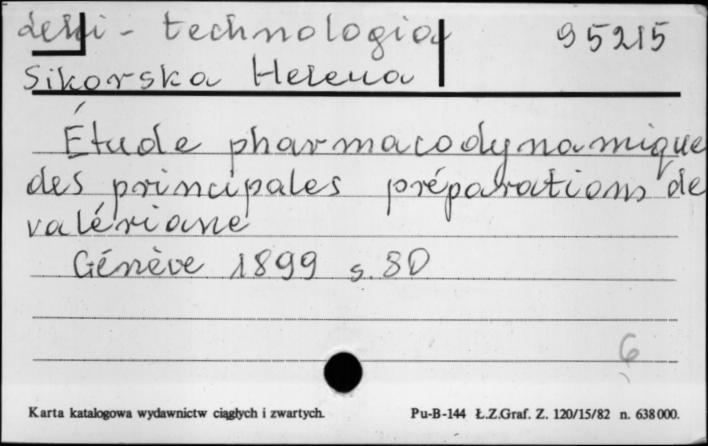 leki - technologia 95215
Sikorska Helena
Étude pharmacodynamique
des principales préparations de
valériane
Génève 1899 s. 80
6
Karta katalogowa wydawnictw ciągłych i zwartych. Pu-B-144 Ł.Z.Graf. Z. 120/15/82 n. 638000.